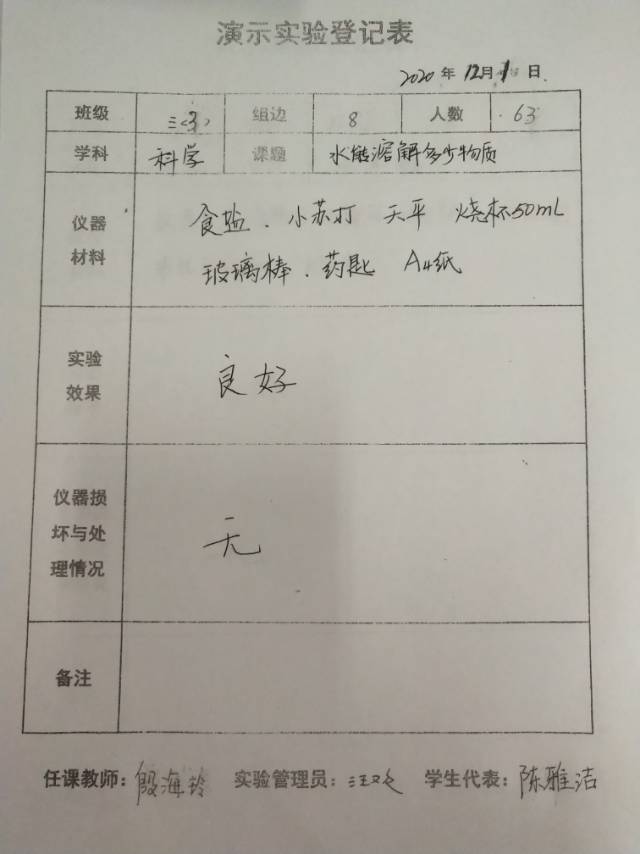 演示实验登记表
2020年12月1日
班级 三<3> 组边 8 人数 63
学科 科学 课题 水能溶解多少物质
仪器材料 食盐.小苏打 天平 烧杯50mL
玻璃棒.药匙 A4纸
实验效果 良好
仪器损坏与处理情况 无
备注
任课教师:殷海玲 实验管理员:汪 学生代表:陈雅洁